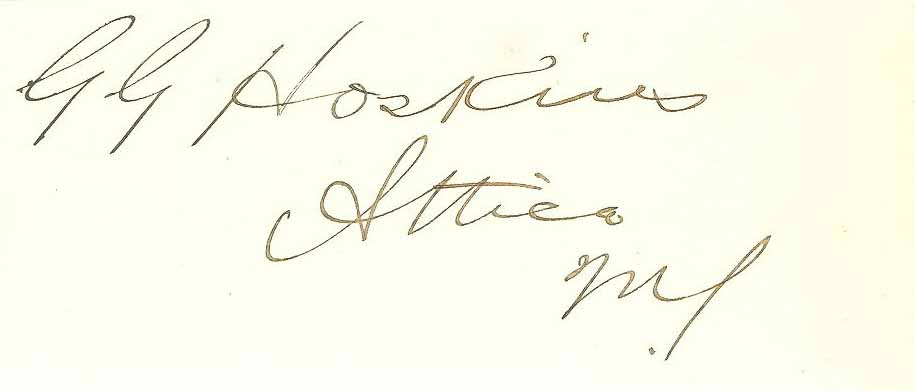 G G Hoskins
Attica
NY